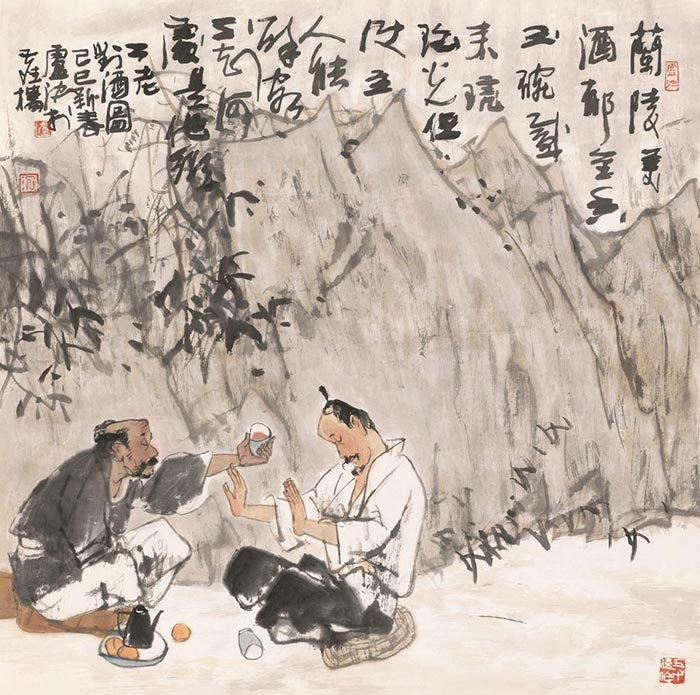 蘭陵美
酒郁金香
玉碗盛
来琥
珀光但
使主
人能
醉客
不知何
處是他鄉
二老
對酒圖
己巳新春
盧沉於